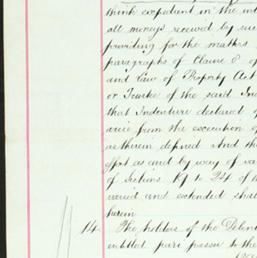 think expedient in the int
all moneys received by suc
providing for the matters
paragraphs of Clause 8 of
and Law of Property Act
or Trusts of the said Ind
that Indenture declared of
arise from the execution of
as therein defined And th
effect as and by way of va
of Sections 19 to 24 of th
varied and extended shal
herein
14. The holders of the Deben
entitled pari passu to the